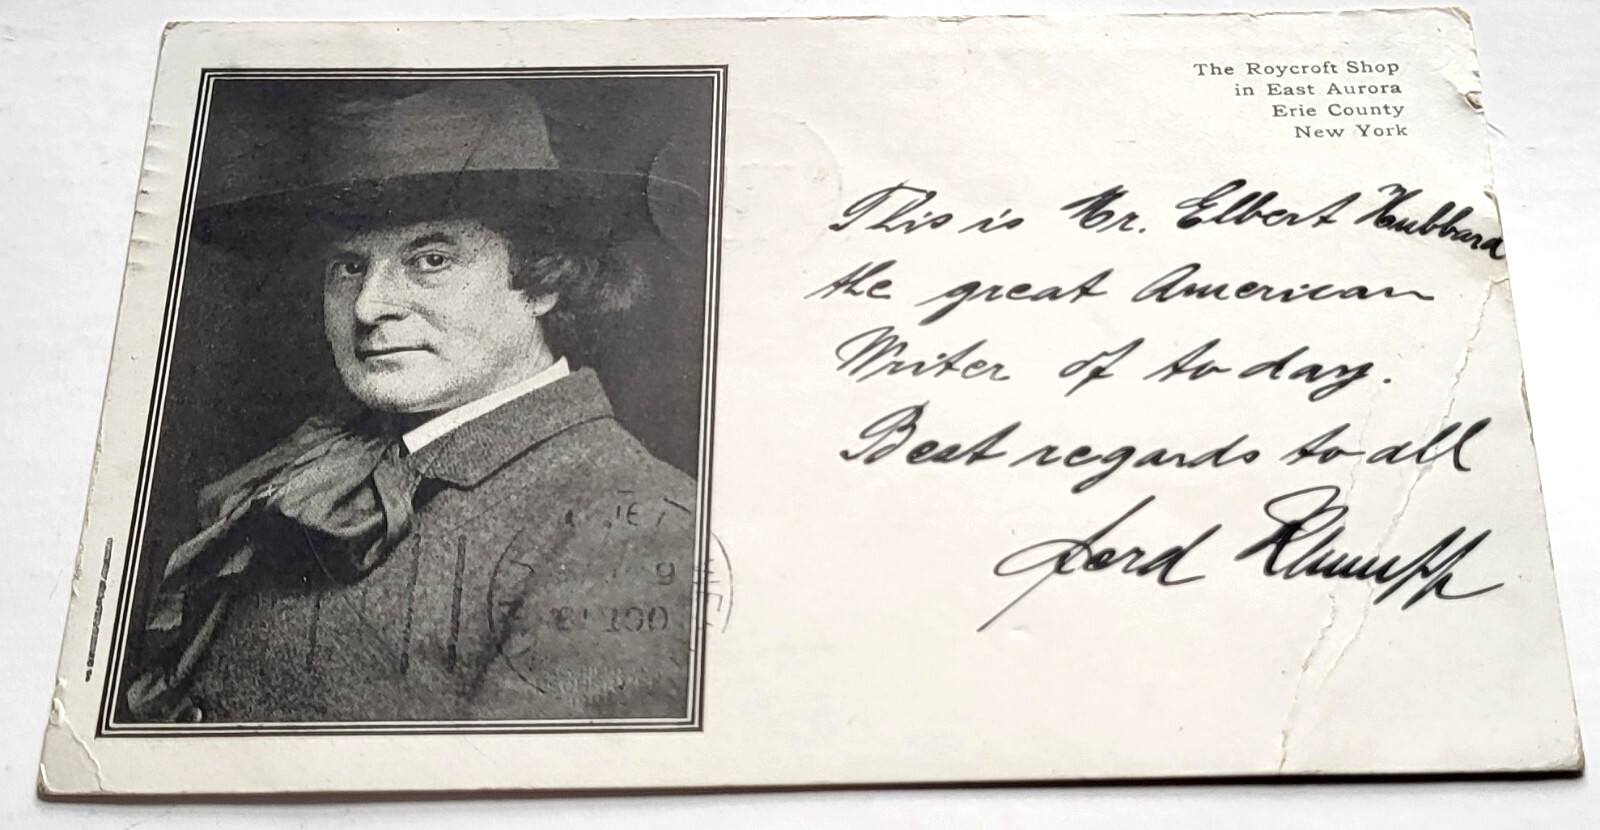 The Roycroft Shop
in East Aurora
Erie County
New York
This is Mr. Elbert Hubbard
the great American
Writer of to day.
Best regards to all
OCT 13